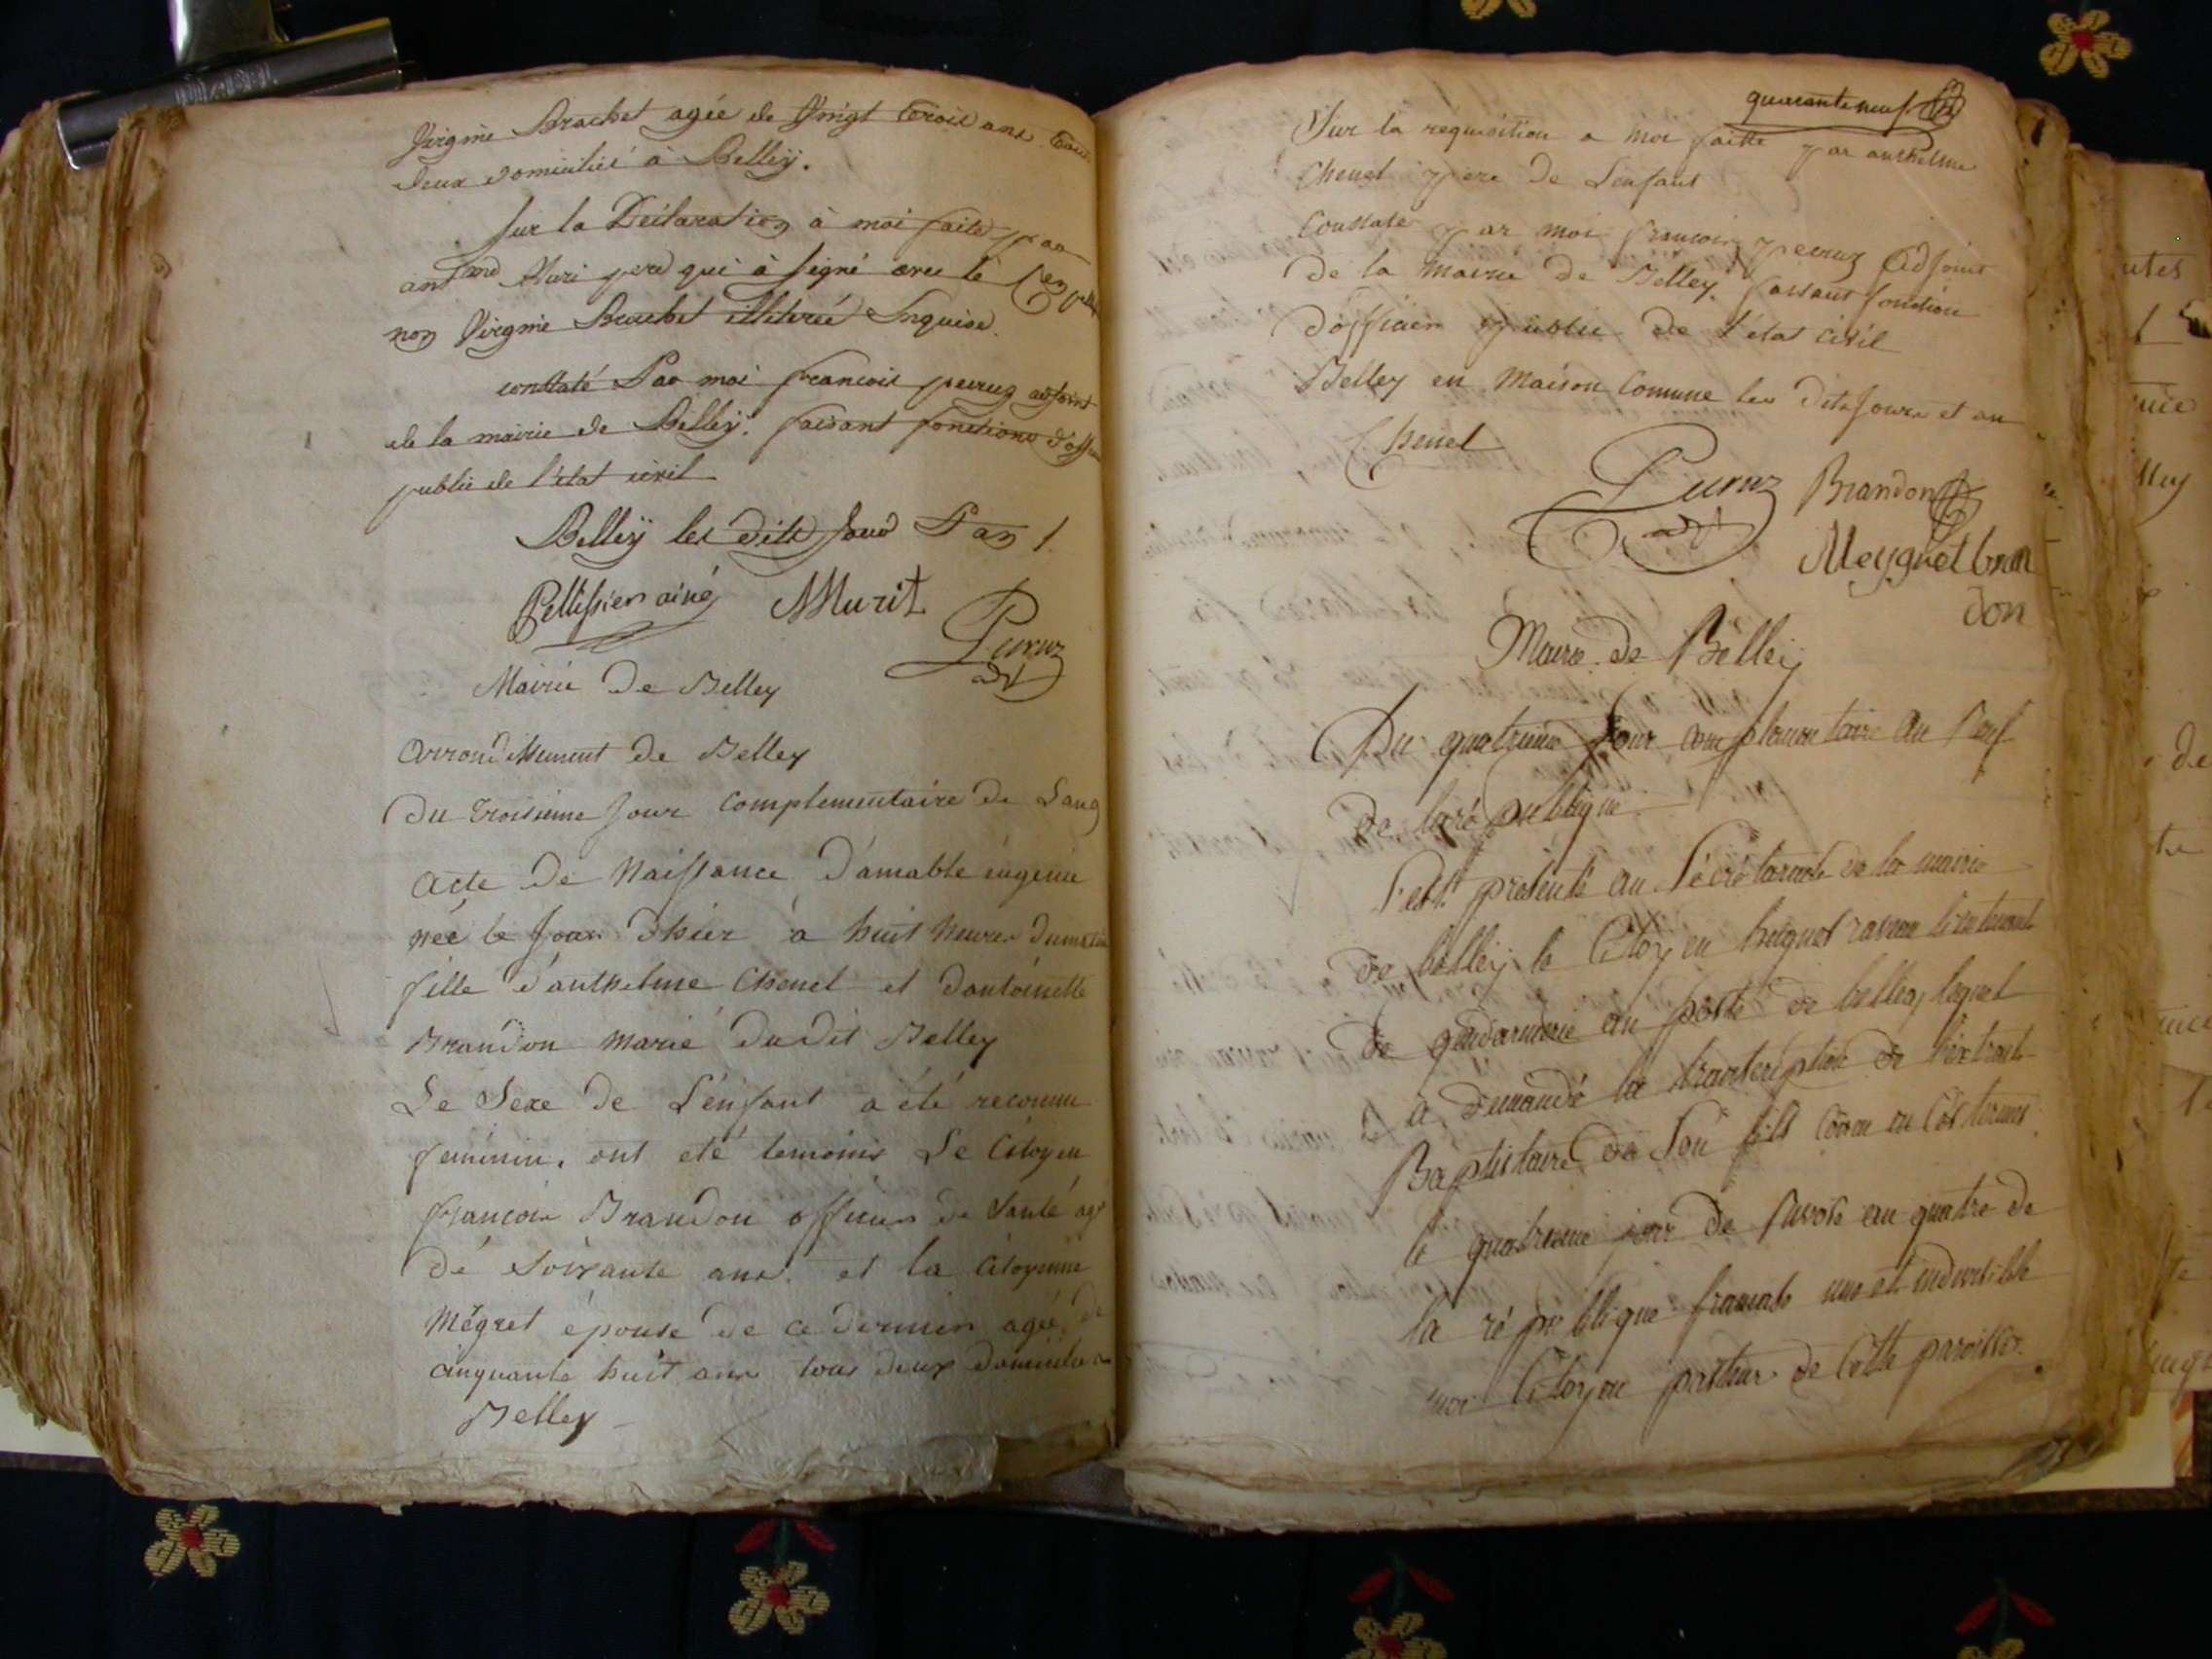 Virginie Brachet agée de Vingt trois ans tous
deux domicilié à Belleÿ.
sur la Déclaration à moi faite par
père qui à signé avec le
non Virginie Brachet illiterée
constaté Par moi francois peeruz adjoint
de la mairie de Belleÿ. faisant fonctions d'off
public de l'état civil
Belleÿ les dits Jour
Pellissier ainé Murit
Peeruz
adj
Mairie De Belley
Arrondissement de Belley
Du troisieme Jour Complementaire De Lan 9
Acte De Naissance D'amable eugenie
née le Jour D'hier à huit heures Dumatin
fille d'anthelme Chenel et Dantoinette
Brandon marié Dudit Belley
Le Sexe De L'enfant a été reconnu
feminin. ont eté temoins Le Citoyen
francois Brandon officier De Santé agé
De Soixante ans. et la Citoyenne
Mégret épouse de ce dernier agée de
cinquante huit ans tous deux domicilies
Belley
quarante neuf
Sur la requisition a moi faitte par anthelme
Chenel pere De L'enfant
Constaté par moi francois peeruz Adjoint
De la mairie De Belley. faisant fonction
D'officier public De l'état Civil
Belley en Maison Comune les Dits Jours et an
Chenel
Peeruz Brandon
adj
Meygret bran
don
Mairie de Belleÿ
Du quatrieme Jour complementaire an Neuf
de la république
S'est présenté au Sécrétariat de la mairie
de belleÿ le Citoyen lieutenant
de gendarmerie au poste de belley, lequel
a demandé la transcription de l'extrait
Baptistaire de Son fils Concu en Ces termes
le quatrieme jour de an quatre de
la république francaise une et indivisible
Citoyen pasteur de Cette paroisse